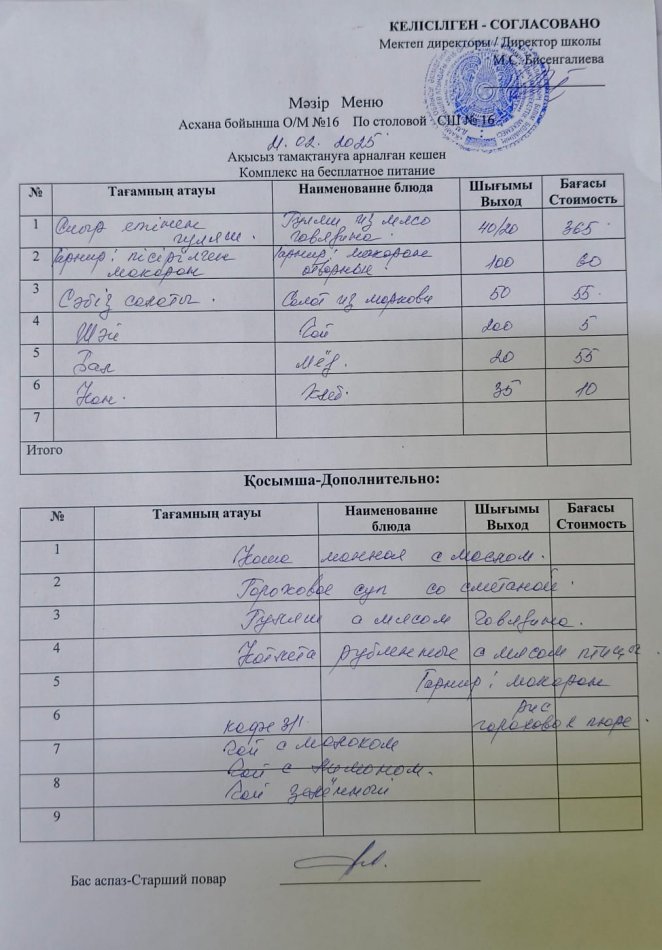 КЕЛІСІЛГЕН - СОГЛАСОВАНО
Мектеп директоры / Директор школы
М.С. Бисенгалиева
Мәзір Меню
Асхана бойынша О/М №16 По столовой СШ № 16
21.02.2025
Ақысыз тамақтануға арналған кешен
Комплекс на бесплатное питание
№ Тағамның атауы Наименование блюда Шығымы Выход Бағасы Стоимость
1 Сиыр етінен гуляш. Гуляш из мясо говядина. 40/20 365
2 Гарнир: пісірілген макарон Гарнир: макарон отворные 100 60
3 Сәбіз салаты. Салат из моркови 50 55
4 Шәй Чай 200 5
5 Бал мёд. 20 55
6 Нан. Хлеб. 35 10
7
Итого
Қосымша-Дополнительно:
№ Тағамның атауы Наименование блюда Шығымы Выход Бағасы Стоимость
1 Каша манная с маслом.
2 Гороховое суп со сметаной.
3 Гуляш с мясом говядина.
4 Котлета рубленные с мясом птицы
5 Гарнир: макарон
рис
6 кофе 3/1 гороховое пюре.
7 Чай с молоком
Чай с лимоном.
8 Чай зелённый
9
Бас аспаз-Старший повар